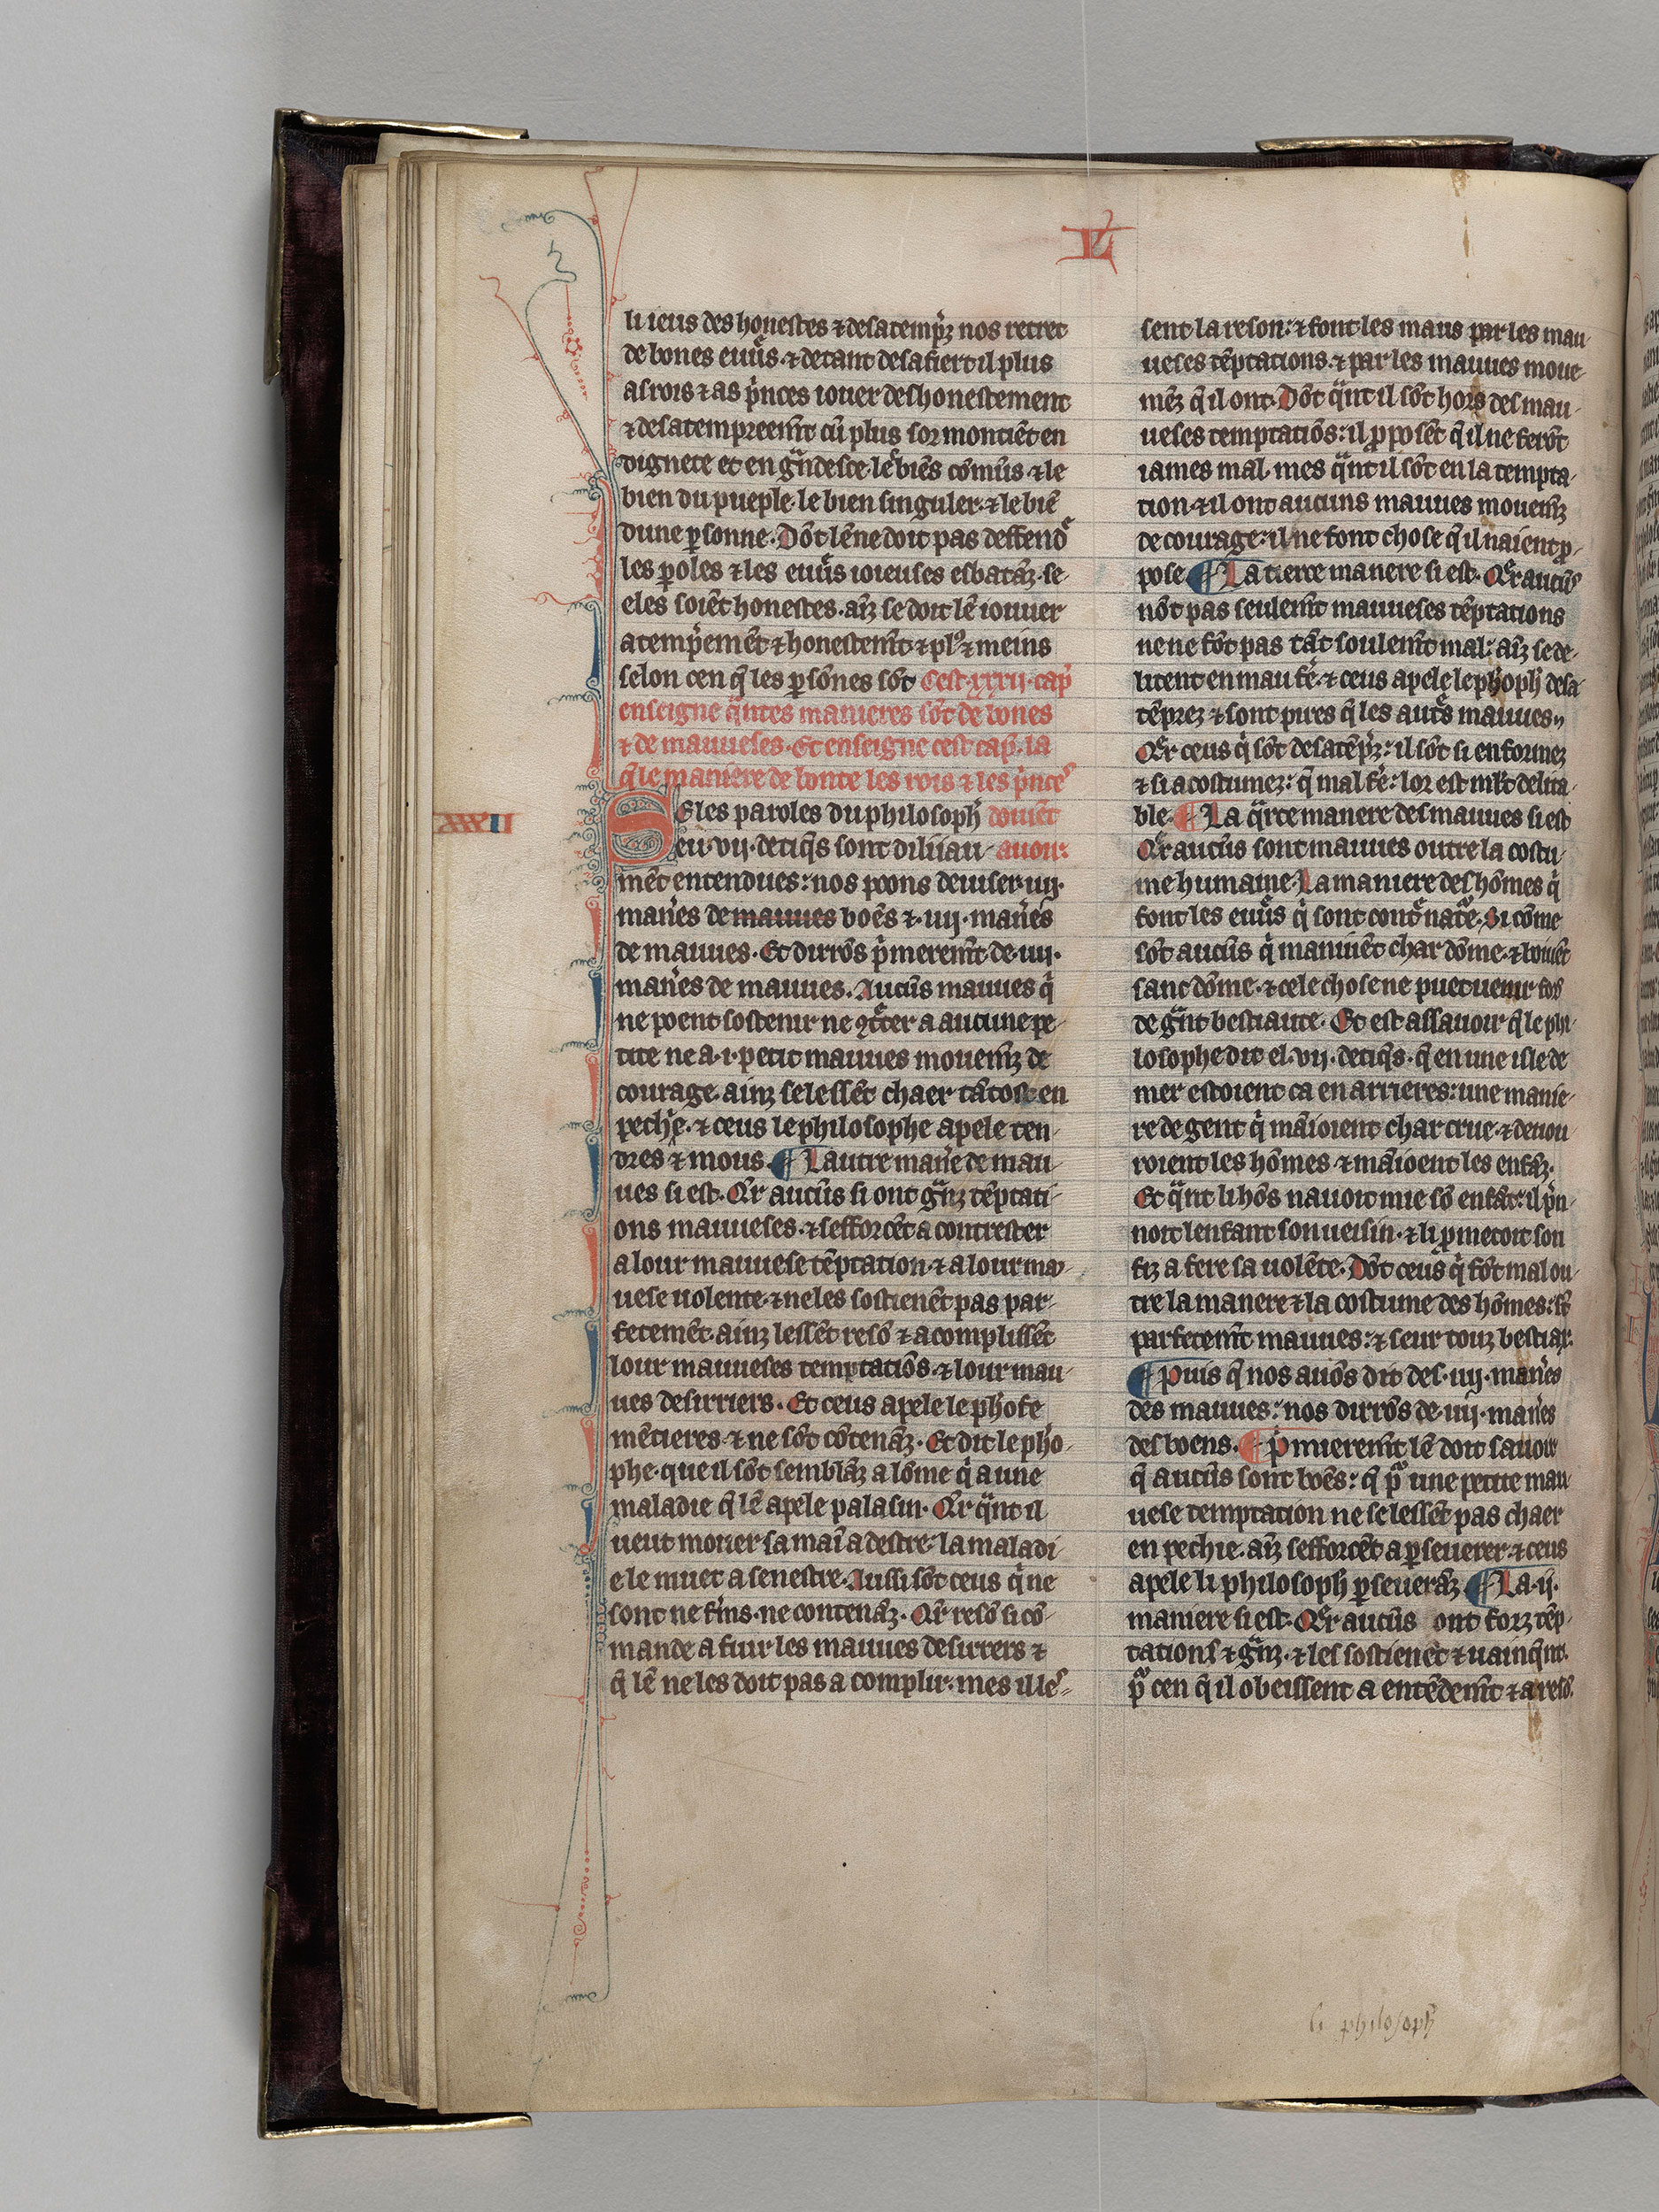 L
li ieus deshonestes ⁊ desatemp̃z nos retret
de bones euur̃s ⁊ de tant desafiert il plus
as rois ⁊ as p̃nces iouer deshonestement
⁊ desatempreem̃t cũ plus sormontiẽt en
dignete et en gñdesce le biẽs comũs ⁊ le
bien du pueple le bien singuler ⁊ le biẽ
dune ꝑsonne. Dõt lẽ ne doit pas deffend̃
les ꝑoles ⁊ les euur̃s ioieuses esbatãz. se
eles soiẽt honestes. aĩz se doit lẽ iouuer
atemp̃emẽt ⁊ honestem̃t ⁊ plꝰ ⁊ meins
selon cen q̃ les ꝑsões sõt Cest. xxxij. cap̃
enseigne q̃ntes manieres sõt de bones
⁊ de mauueses. Et enseigne cest cap̃. la
q̃le maniere de bonte les rois ⁊ les p̃nces
xxxij
Se les paroles du philosoph̃ doiuẽt
eu. vij. detiq̃s sont diliiau auon:
mẽt entendues: nos poons deuiser. iiij.
mañes de mauues boẽs ⁊. iiij. mañes
de mauues. Et dirrõs p̃merem̃t de. iiij.
mañes de mauues. Aucũs mauues q̃
ne poent sostenir ne ꝯt̃ter a aucune pe-
tite ne a. i. petit mauues mouem̃z de
courage. ainz se lessẽt chaer tãtost en
pechẽ. ⁊ ceus le philosophe apele ten-
dres ⁊ mous. ¶ Lautre mañe de mau-
ues si est. Q̃r aucũs si ont gñz tẽptati-
ons mauueses. ⁊ sefforcẽt a contrester
a lour mauuese tẽptation. ⁊ a lour ma-
uese uolente. ⁊ ne les sostienẽt pas par-
fetemẽt. ainz lessẽt resõ ⁊ acomplissẽt
lour mauueses temptatiõs. ⁊ lour mau-
ues desirriers. Et ceus apele le phofe
mẽtieres. ⁊ ne sõt cõtenãz. Et dit le pho-
phe. que il sõt semblãz a lõme q̃ a une
maladie q̃ lẽ apele palasin. Q̃r q̃nt il
ueut mouer sa maĩ a destre. la maladi
e le muet a senestre. Aussi sõt ceus q̃ ne
sont ne fr̃ms. ne contenãz. Q̃r resõ si cõ-
mande a fuir les mauues desirrers ⁊
q̃ lẽ ne les doit pas a complir. mes il le-
sent la reson: ⁊ font les maus par les mau-
ueses tẽptations. ⁊ par les mauues moue-
mẽz q̃ il ont. Dõt q̃nt il sõt hors des mau-
ueses temptatiõs: il ꝓposẽt q̃ il ne ferõt
iames mal. mes q̃nt il sõt en la tempta-
tion. ⁊ il ont aucuns mauues mouem̃z
de courage: il ne font chose q̃ il naient ꝓ-
pose ¶ La tierce manere si est. Q̃r aucũs
nõt pas seulem̃t mauueses tẽptations
ne ne fõt pas tãt soulem̃t mal: aĩz se de-
litent en mau fẽ. ⁊ ceus apele le phoph̃ desa-
tẽprez ⁊ sont pires q̃ les aut̃s mauues.
Q̃r ceus q̃ sõt desatẽp̃z: il sõt si enformez
⁊ si acostumez: q̃ mal fẽ: lor est ml̃t delita-
ble. ¶ La q̃rte manere des mauues si est
Q̃r aucũs sont mauues outre la costu-
me humaine. La maniere des hõmes q̃
font les euur̃s q̃ sont cont̃ nat̃e. Si cõme
sõt aucũs q̃ maniuẽt char dõme. ⁊ boiuẽt
sanc dõme. ⁊ cele chose ne puet uenir fors
de gñt bestiaute. Et est assauoir q̃ le phi-
losophe dit el. vij. detiq̃s. q̃ en une isle de
mer estoient ca en arrieres: une manie-
re de gent q̃ mãioient char crue. ⁊ deuou-
roient les hõmes ⁊ mãioent les enfãz.
Et q̃nt li hõs nauoit mie sõ enfãt: il p̃n-
noit lenfant son ueisin. ⁊ li ꝓmetoit son
fiz a fere sa uolẽte. Dõt ceus q̃ fõt mal ou-
tre la manere ⁊ la costume des hõmes: sõt
parfetem̃t mauues: ⁊ seur touz bestiax.
¶ Puis q̃ nos auõs dit des. iiij. mañes
des mauues: nos dirrõs de. iiij. mañes
des boens. ¶ P̃mierem̃t lẽ doit sauoir
q̃ aucũs sont boẽs: q̃ p̃ une petite mau-
uese temptation ne se lessẽt pas chaer
en pechie. aĩz sefforcẽt a ꝑseuerer. ⁊ ceus
apele li philosoph̃ ꝑseuerãz ¶ La. ij.
maniere si est. Q̃r aucũs ont forz tẽp-
tations ⁊ gñz. ⁊ les sostienẽt ⁊ uainq̃nt.
p̃ cen q̃ il obeissent a entẽdem̃t ⁊ a resõ.
li philosoph̃